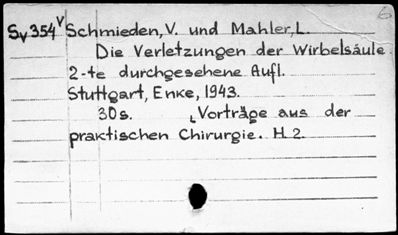 Sv354V Schmieden, V. und Mahler, L.
Die Verletzungen der Wirbelsäule
2-te durchgesehene Aufl.
Stuttgart, Enke, 1943.
30s. Vorträge aus der
praktischen Chirurgie. H. 2.